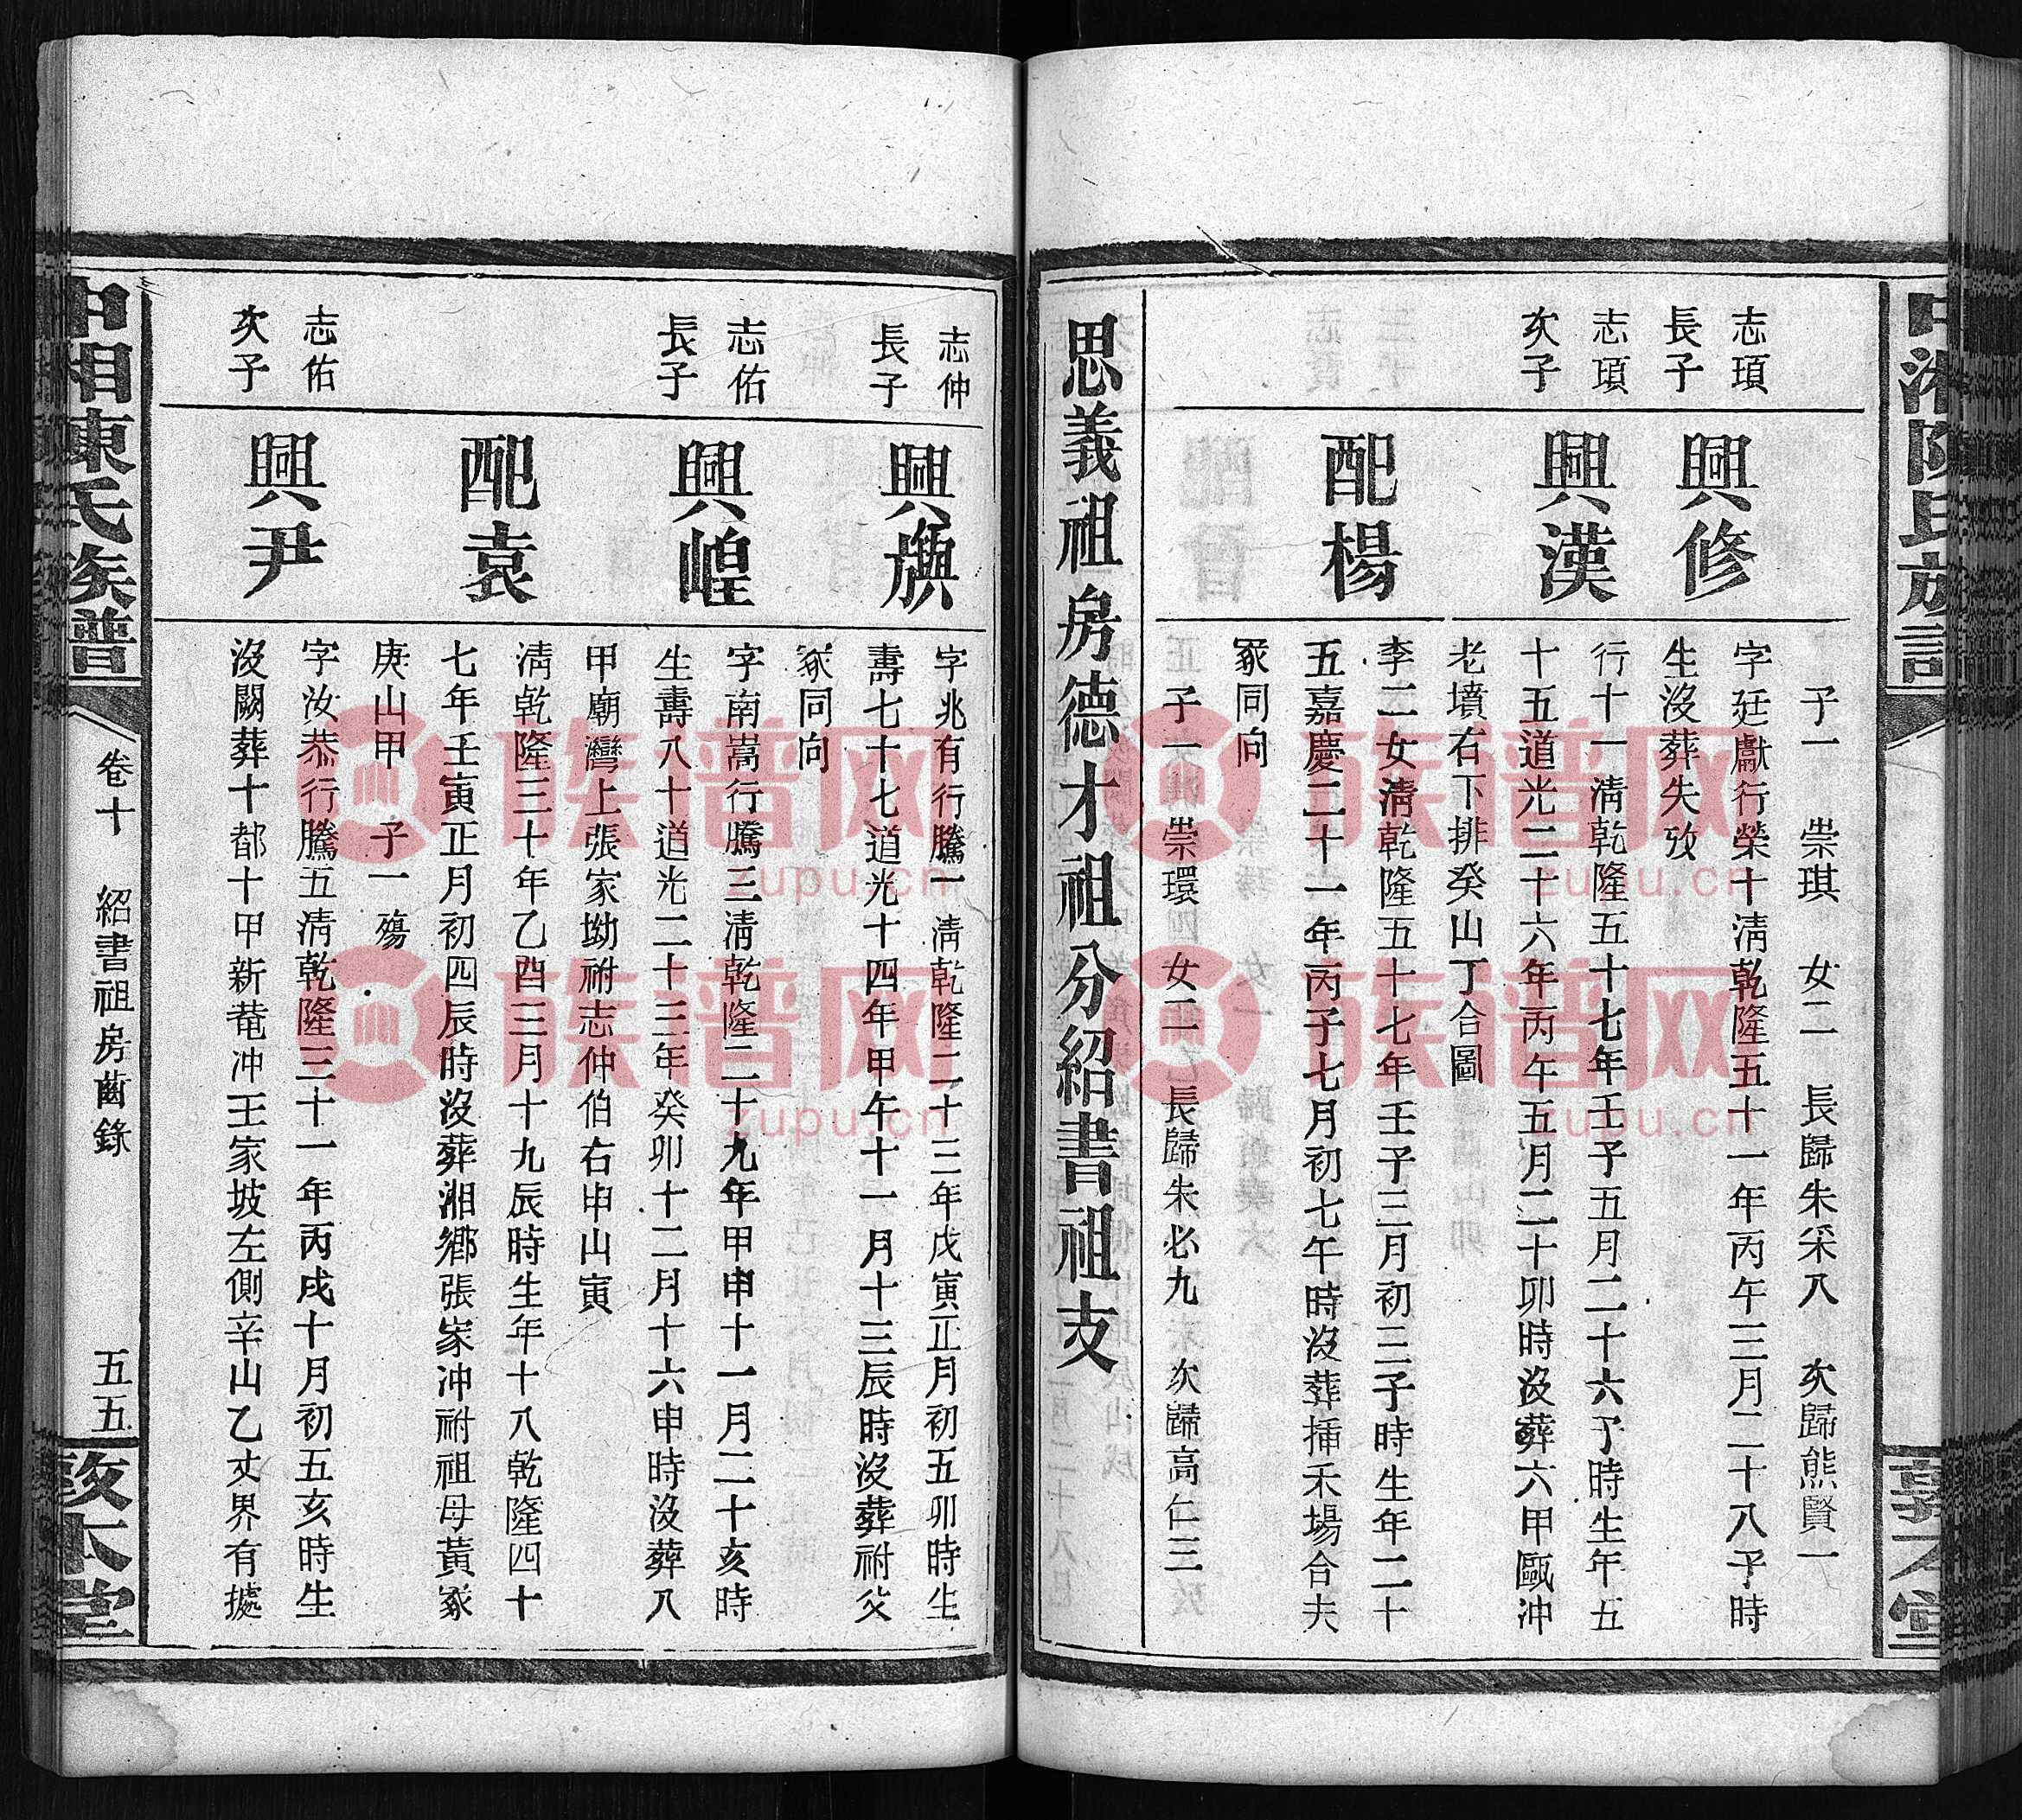 子一　崇琪　女二　長歸朱采八　次歸熊賢一
志頊
長子
興修
字廷獻行榮十淸乾隆五十一年丙午三月二十八子時
生沒葬失攷
志頊
次子
興漢
行十一淸乾隆五十七年壬子五月二十六子時生年五
十五道光二十六年丙午五月二十卯時沒葬六甲甌冲
老墳右下排癸山丁合圖
配楊
李二女淸乾隆五十七年壬子三月初三子時生年二十
五嘉慶二十一年丙子七月初七午時沒葬揷禾場合夫
冢同向
子一　崇環　女二　長歸朱必九　次歸高仁三
思義祖房德才祖分紹書祖支
志仲
長子
興旟
字兆有行騰一淸乾隆二十三年戊寅正月初五卯時生
壽七十七道光十四年甲午十一月十三辰時沒葬祔父
冢同向
志佑
長子
興崲
字南嵩行騰三淸乾隆二十九年甲申十一月二十亥時
生壽八十道光二十三年癸卯十二月十六申時沒葬八
甲廟灣上張家坳祔志仲伯右申山寅
配袁
淸乾隆三十年乙酉三月十九辰時生年十八乾隆四十
七年壬寅正月初四辰時沒葬湘鄉張家冲祔祖母黃冢
庚山甲　子一　殤
志佑
次子
興尹
字汝恭行騰五淸乾隆三十一年丙戌十月初五亥時生
沒闕葬十都十甲新菴冲王家坡左側辛山乙丈界有據
中湘陳氏族譜
卷十　紹書祖房齒錄
五五
敦本堂
族谱网
zupu.cn
族谱网
zupu.cn
族谱网
zupu.cn
族谱网
zupu.cn